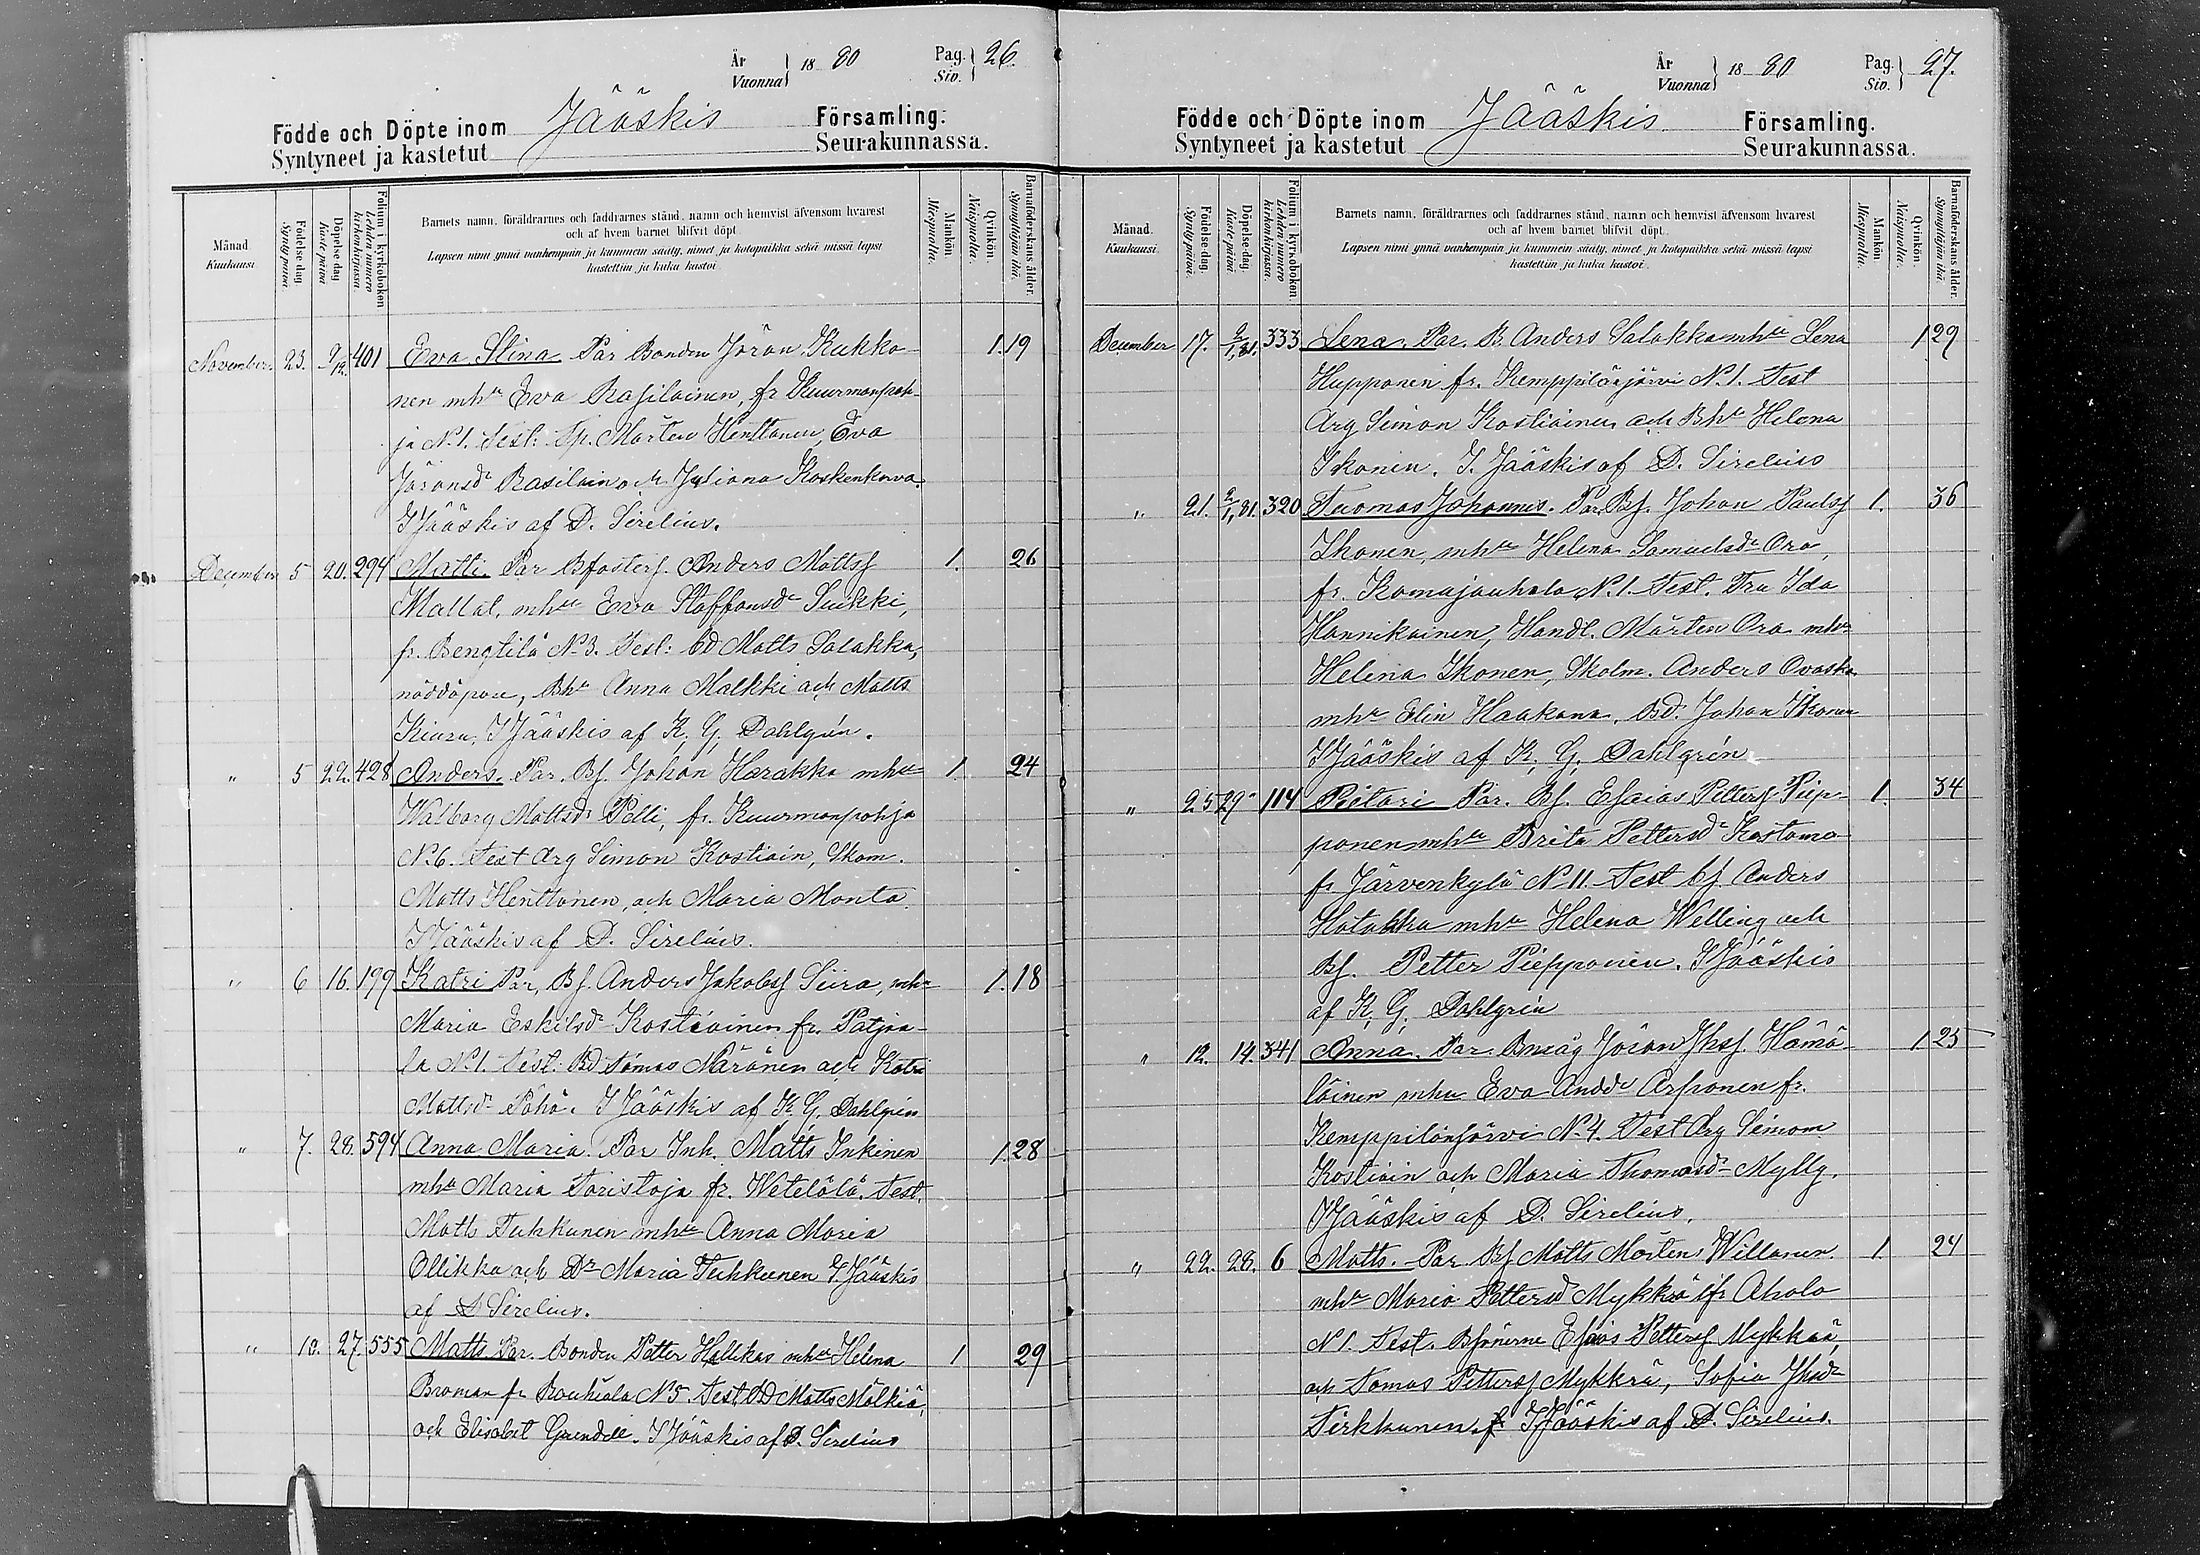 År
Vuonna } 18 80 Pag. Siv. } 26.
Födde och Döpte inom Jääskis Församling.
Syntyneet ja kastetut Seurakunnassa.
Månad. Kuukausi. Födelse-dag. Syntypäivä. Döpelse-dag. Kaste-päivä. Folium i kyrkoboken. Lehden numero kirkonkirjassa.
Barnets namn, föräldrarnes och faddrarnes stånd, namn och hemvist äfvensom hvarest
och af hvem barnet blifvit döpt.
Lapsen nimi ynnä vanhempain ja kummein sääty, nimet ja kotopaikka sekä missä lapsi
kastettiin ja kuka kastoi.
Mankön. Miespuolia. Qvinkön. Naispuolia. Barnaföderskans ålder. Synnyttäjän ikä.
November 23. 9/12. 401 Ewa Stina Par Bonden Jöran Kukko- 1. 19
nen mhu Ewa Rasilainen, fr Kuurmanpoh-
ja N:1. Test: Sp. Mårten Henttonen, Eva
Jöransdr Rasilain och Juliana Koskenkorva.
I Jääskis af D. Sirelius.
December 5 20. 294 Matti. Par Bfosters. Anders Mattsf 1. 26
Mallat, mhu Ewa Staffansdr Suikki,
fr. Bengtilä N:3. Test: bd Matts Salakka,
nöddöpare, Bhu Anna Malkki och Matts
Kiuru, I Jääskis af K. G. Dahlgrén.
" 5 22. 428 Anders. Par. Bf. Johan Harakka mhu 1. 24
Walborg Mattsdr Pelli, fr. Kuurmanpohja
N:6. Test Arg Simon Kostiain, Skom.
Matts Henttonen, och Maria Monto.
I Jääskis af D. Sirelius.
" 6 16. 199 Katri Par, Bf. Anders Jakobsf Siira, mhu 1. 18
Maria Eskilsdr Kostiainen fr. Patja-
la N:1. Test: Bd Tomas Näränen och Katri
Mattsdr Pöhö. I Jääskis af K. G. Dahlgrén
" 7. 28. 594 Anna Maria. Par Inh. Matts Inkinen 1. 28
mhu Maria Toristoja fr. Wetelälä. Test.
Matts Tuhkunen mhu Anna Maria
Ollikka och Dr Maria Tuhkunen I Jääskis
af D Sirelius.
" 10. 27. 555 Matts Par. Bonden Petter Hallikas mhu Helena 1 29
Broman fr Rouhiala N:5. Test. Bd Matts Mälkiä,
och Elisabet Grundell. I Jääskis af D. Sirelius
År
Vuonna } 18 80 Pag. Siv. } 27.
Födde och Döpte inom Jääskis Församling.
Syntyneet ja kastetut Seurakunnassa.
Månad. Kuukausi. Födelse-dag. Syntypäivä. Döpelse-dag. Kaste-päivä. Folium i kyrkoboken. Lehden numero kirkonkirjassa.
Barnets namn, föräldrarnes och faddrarnes stånd, namn och hemvist äfvensom hvarest
och af hvem barnet blifvit döpt.
Lapsen nimi ynnä vanhempain ja kummein sääty, nimet ja kotopaikka sekä missä lapsi
kastettiin ja kuka kastoi.
Mankön. Miespuolia. Qvinkön. Naispuolia. Barnaföderskans ålder. Synnyttäjän ikä.
December 17. 2/1,81. 333 Lena. Par. B. Anders Salakka mhu Lena 1 29
Hupponen fr. Kemppilänjärvi N:1. Test
Arg Simon Kostiainen och Bhu Helena
Ikonen. I. Jääskis af D. Sirelius
" 21. 2/1,81. 320 Tuomas Johannes. Par. Bf. Johan Paulsf 1. 36
Ikonen, mhu Helena Samuelsdr Ora,
fr. Komajauhola N:1. Test. Fru Ida
Hannikainen, Handl. Mårten Ora mhu
Helena Ikonen, Skolm. Anders Ovaska
mhu Elin Haakana, Bd. Johan Ikonen
I Jääskis af K. G. Dahlgrén
" 25 29 114 Pietari Par. Bf. Esaias Pettersf Piip- 1. 34
ponen mhu Brita Pettersdr Kostamo
fr Järvenkylä N:11. Test bf. Anders
Hatakka mhu Helena Welling och
Bf. Petter Piepponen. I Jääskis
af K. G. Dahlgrén
" 12. 14. 341 Anna. Par. Bmåg Jöran Jhsf. Hämä- 1 25
läinen mhu Eva Anddr Arponen fr.
Kemppilänjärvi N:4. Test Arg Simon
Kostiain och Maria Thomasdr Mylly.
I Jääskis af D. Sirelius.
" 22. 28. 6 Matts. Par. Bf Matts Mårtens Willanen 1. 24
mhu Maria Pettersd Mykkä fr Ahola
N:1. Test. Bsönerne Esaias Pettersf Mykkrä,
och Tomas Pettersf Mykkrä, Sofia Jhsdr
Tirkkunen. I Jääskis af D. Sirelius.